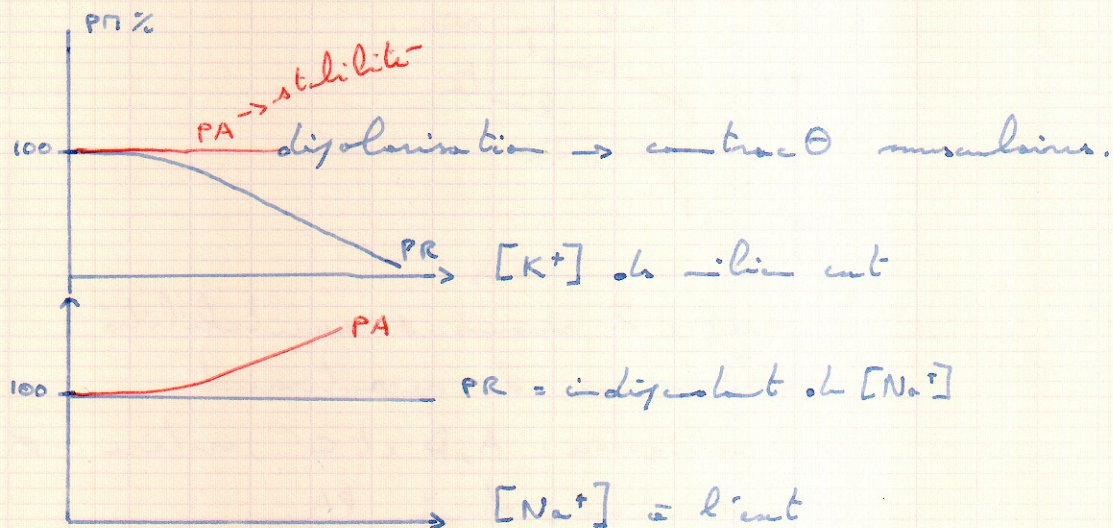 PM %
PA → stabilité
100 dépolarisation → contrac⊖ musculaires.
PR
[K⁺] du milieu ext
PA
100 PR = indépendant de [Na⁺]
[Na⁺] à l'ext